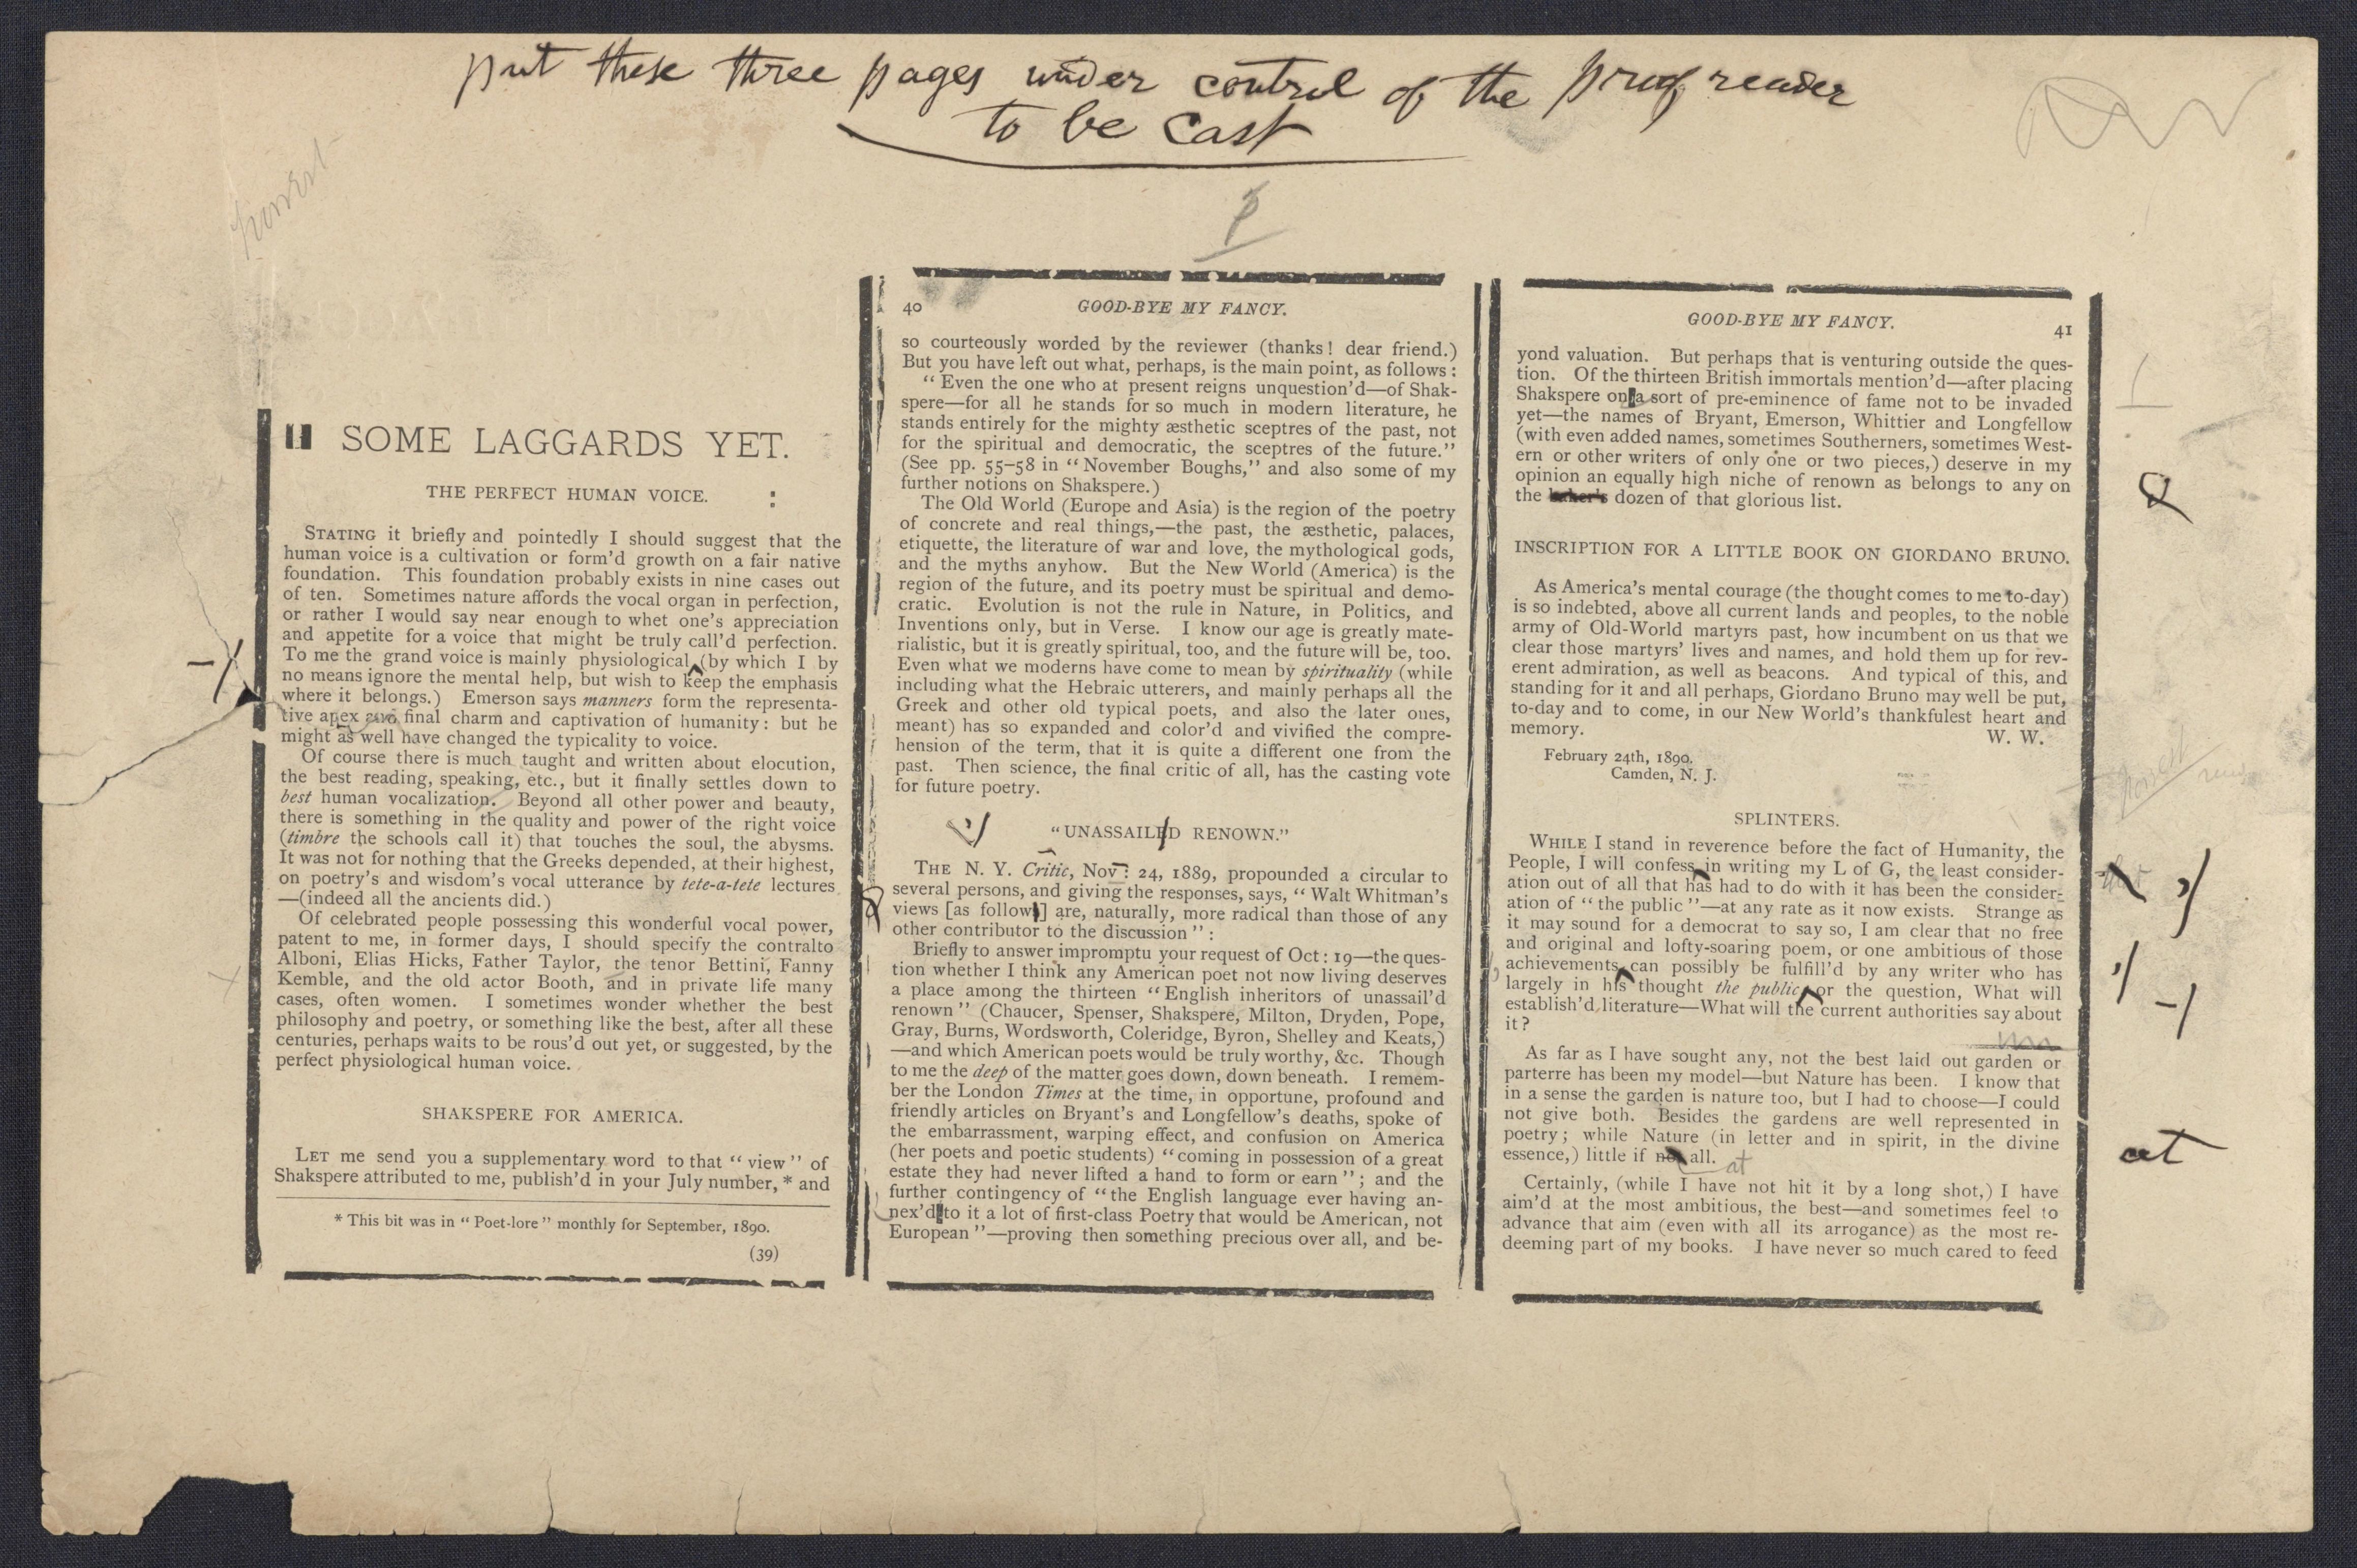 put these three pages under control of the proof reader
to be cast
SOME LAGGARDS YET.
THE PERFECT HUMAN VOICE. :
STATING it briefly and pointedly I should suggest that the
human voice is a cultivation or form'd growth on a fair native
foundation. This foundation probably exists in nine cases out
of ten. Sometimes nature affords the vocal organ in perfection,
or rather I would say near enough to whet one's appreciation
and appetite for a voice that might be truly call'd perfection.
To me the grand voice is mainly physiological (by which I by
no means ignore the mental help, but wish to keep the emphasis
where it belongs.) Emerson says manners form the representa-
tive apex and final charm and captivation of humanity: but he
might as well have changed the typicality to voice.
Of course there is much taught and written about elocution,
the best reading, speaking, etc., but it finally settles down to
best human vocalization. Beyond all other power and beauty,
there is something in the quality and power of the right voice
(timbre the schools call it) that touches the soul, the abysms.
It was not for nothing that the Greeks depended, at their highest,
on poetry's and wisdom's vocal utterance by tete-a-tete lectures
—(indeed all the ancients did.)
Of celebrated people possessing this wonderful vocal power,
patent to me, in former days, I should specify the contralto
Alboni, Elias Hicks, Father Taylor, the tenor Bettini, Fanny
Kemble, and the old actor Booth, and in private life many
cases, often women. I sometimes wonder whether the best
philosophy and poetry, or something like the best, after all these
centuries, perhaps waits to be rous'd out yet, or suggested, by the
perfect physiological human voice.
SHAKSPERE FOR AMERICA.
LET me send you a supplementary word to that “view” of
Shakspere attributed to me, publish'd in your July number,* and
* This bit was in “Poet-lore” monthly for September, 1890.
(39)
40 GOOD-BYE MY FANCY.
so courteously worded by the reviewer (thanks! dear friend.)
But you have left out what, perhaps, is the main point, as follows:
“Even the one who at present reigns unquestion'd—of Shak-
spere—for all he stands for so much in modern literature, he
stands entirely for the mighty æsthetic sceptres of the past, not
for the spiritual and democratic, the sceptres of the future.”
(See pp. 55–58 in “November Boughs,” and also some of my
further notions on Shakspere.)
The Old World (Europe and Asia) is the region of the poetry
of concrete and real things,—the past, the æsthetic, palaces,
etiquette, the literature of war and love, the mythological gods,
and the myths anyhow. But the New World (America) is the
region of the future, and its poetry must be spiritual and demo-
cratic. Evolution is not the rule in Nature, in Politics, and
Inventions only, but in Verse. I know our age is greatly mate-
rialistic, but it is greatly spiritual, too, and the future will be, too.
Even what we moderns have come to mean by spirituality (while
including what the Hebraic utterers, and mainly perhaps all the
Greek and other old typical poets, and also the later ones,
meant) has so expanded and color'd and vivified the compre-
hension of the term, that it is quite a different one from the
past. Then science, the final critic of all, has the casting vote
for future poetry.
“UNASSAILED RENOWN.”
THE N. Y. Critic, Nov: 24, 1889, propounded a circular to
several persons, and giving the responses, says, “Walt Whitman's
views [as follow] are, naturally, more radical than those of any
other contributor to the discussion”:
Briefly to answer impromptu your request of Oct: 19—the ques-
tion whether I think any American poet not now living deserves
a place among the thirteen “English inheritors of unassail'd
renown” (Chaucer, Spenser, Shakspere, Milton, Dryden, Pope,
Gray, Burns, Wordsworth, Coleridge, Byron, Shelley and Keats,)
—and which American poets would be truly worthy, &c. Though
to me the deep of the matter goes down, down beneath. I remem-
ber the London Times at the time, in opportune, profound and
friendly articles on Bryant's and Longfellow's deaths, spoke of
the embarrassment, warping effect, and confusion on America
(her poets and poetic students) “coming in possession of a great
estate they had never lifted a hand to form or earn”; and the
further contingency of “the English language ever having an-
nex'd to it a lot of first-class Poetry that would be American, not
European”—proving then something precious over all, and be-
GOOD-BYE MY FANCY. 41
yond valuation. But perhaps that is venturing outside the ques-
tion. Of the thirteen British immortals mention'd—after placing
Shakspere on a sort of pre-eminence of fame not to be invaded
yet—the names of Bryant, Emerson, Whittier and Longfellow
(with even added names, sometimes Southerners, sometimes West-
ern or other writers of only one or two pieces,) deserve in my
opinion an equally high niche of renown as belongs to any on
the baker's dozen of that glorious list.
INSCRIPTION FOR A LITTLE BOOK ON GIORDANO BRUNO.
As America's mental courage (the thought comes to me to-day)
is so indebted, above all current lands and peoples, to the noble
army of Old-World martyrs past, how incumbent on us that we
clear those martyrs' lives and names, and hold them up for rev-
erent admiration, as well as beacons. And typical of this, and
standing for it and all perhaps, Giordano Bruno may well be put,
to-day and to come, in our New World's thankfulest heart and
memory. W. W.
February 24th, 1890.
Camden, N. J.
SPLINTERS.
WHILE I stand in reverence before the fact of Humanity, the
People, I will confess in writing my L of G, the least consider-
ation out of all that has had to do with it has been the consider-
ation of “the public”—at any rate as it now exists. Strange as
it may sound for a democrat to say so, I am clear that no free
and original and lofty-soaring poem, or one ambitious of those
achievements, can possibly be fulfill'd by any writer who has
largely in his thought the public, or the question, What will
establish'd literature—What will the current authorities say about
it?
As far as I have sought any, not the best laid out garden or
parterre has been my model—but Nature has been. I know that
in a sense the garden is nature too, but I had to choose—I could
not give both. Besides the gardens are well represented in
poetry; while Nature (in letter and in spirit, in the divine
essence,) little if not all.
at
at
Certainly, (while I have not hit it by a long shot,) I have
aim'd at the most ambitious, the best—and sometimes feel to
advance that aim (even with all its arrogance) as the most re-
deeming part of my books. I have never so much cared to feed